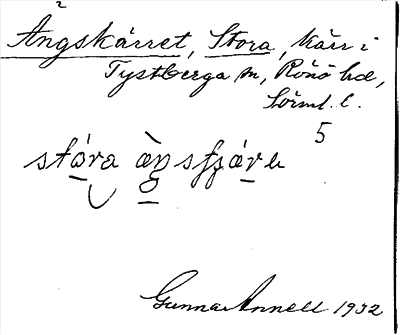 Ängskärret, Stora, kärr i
Tystberga sn, Rönö hd,
Sörml. l.
5
stóra
Gunnar Annell 1932